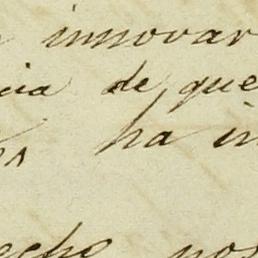 innovar
cia de que
ha in
echo